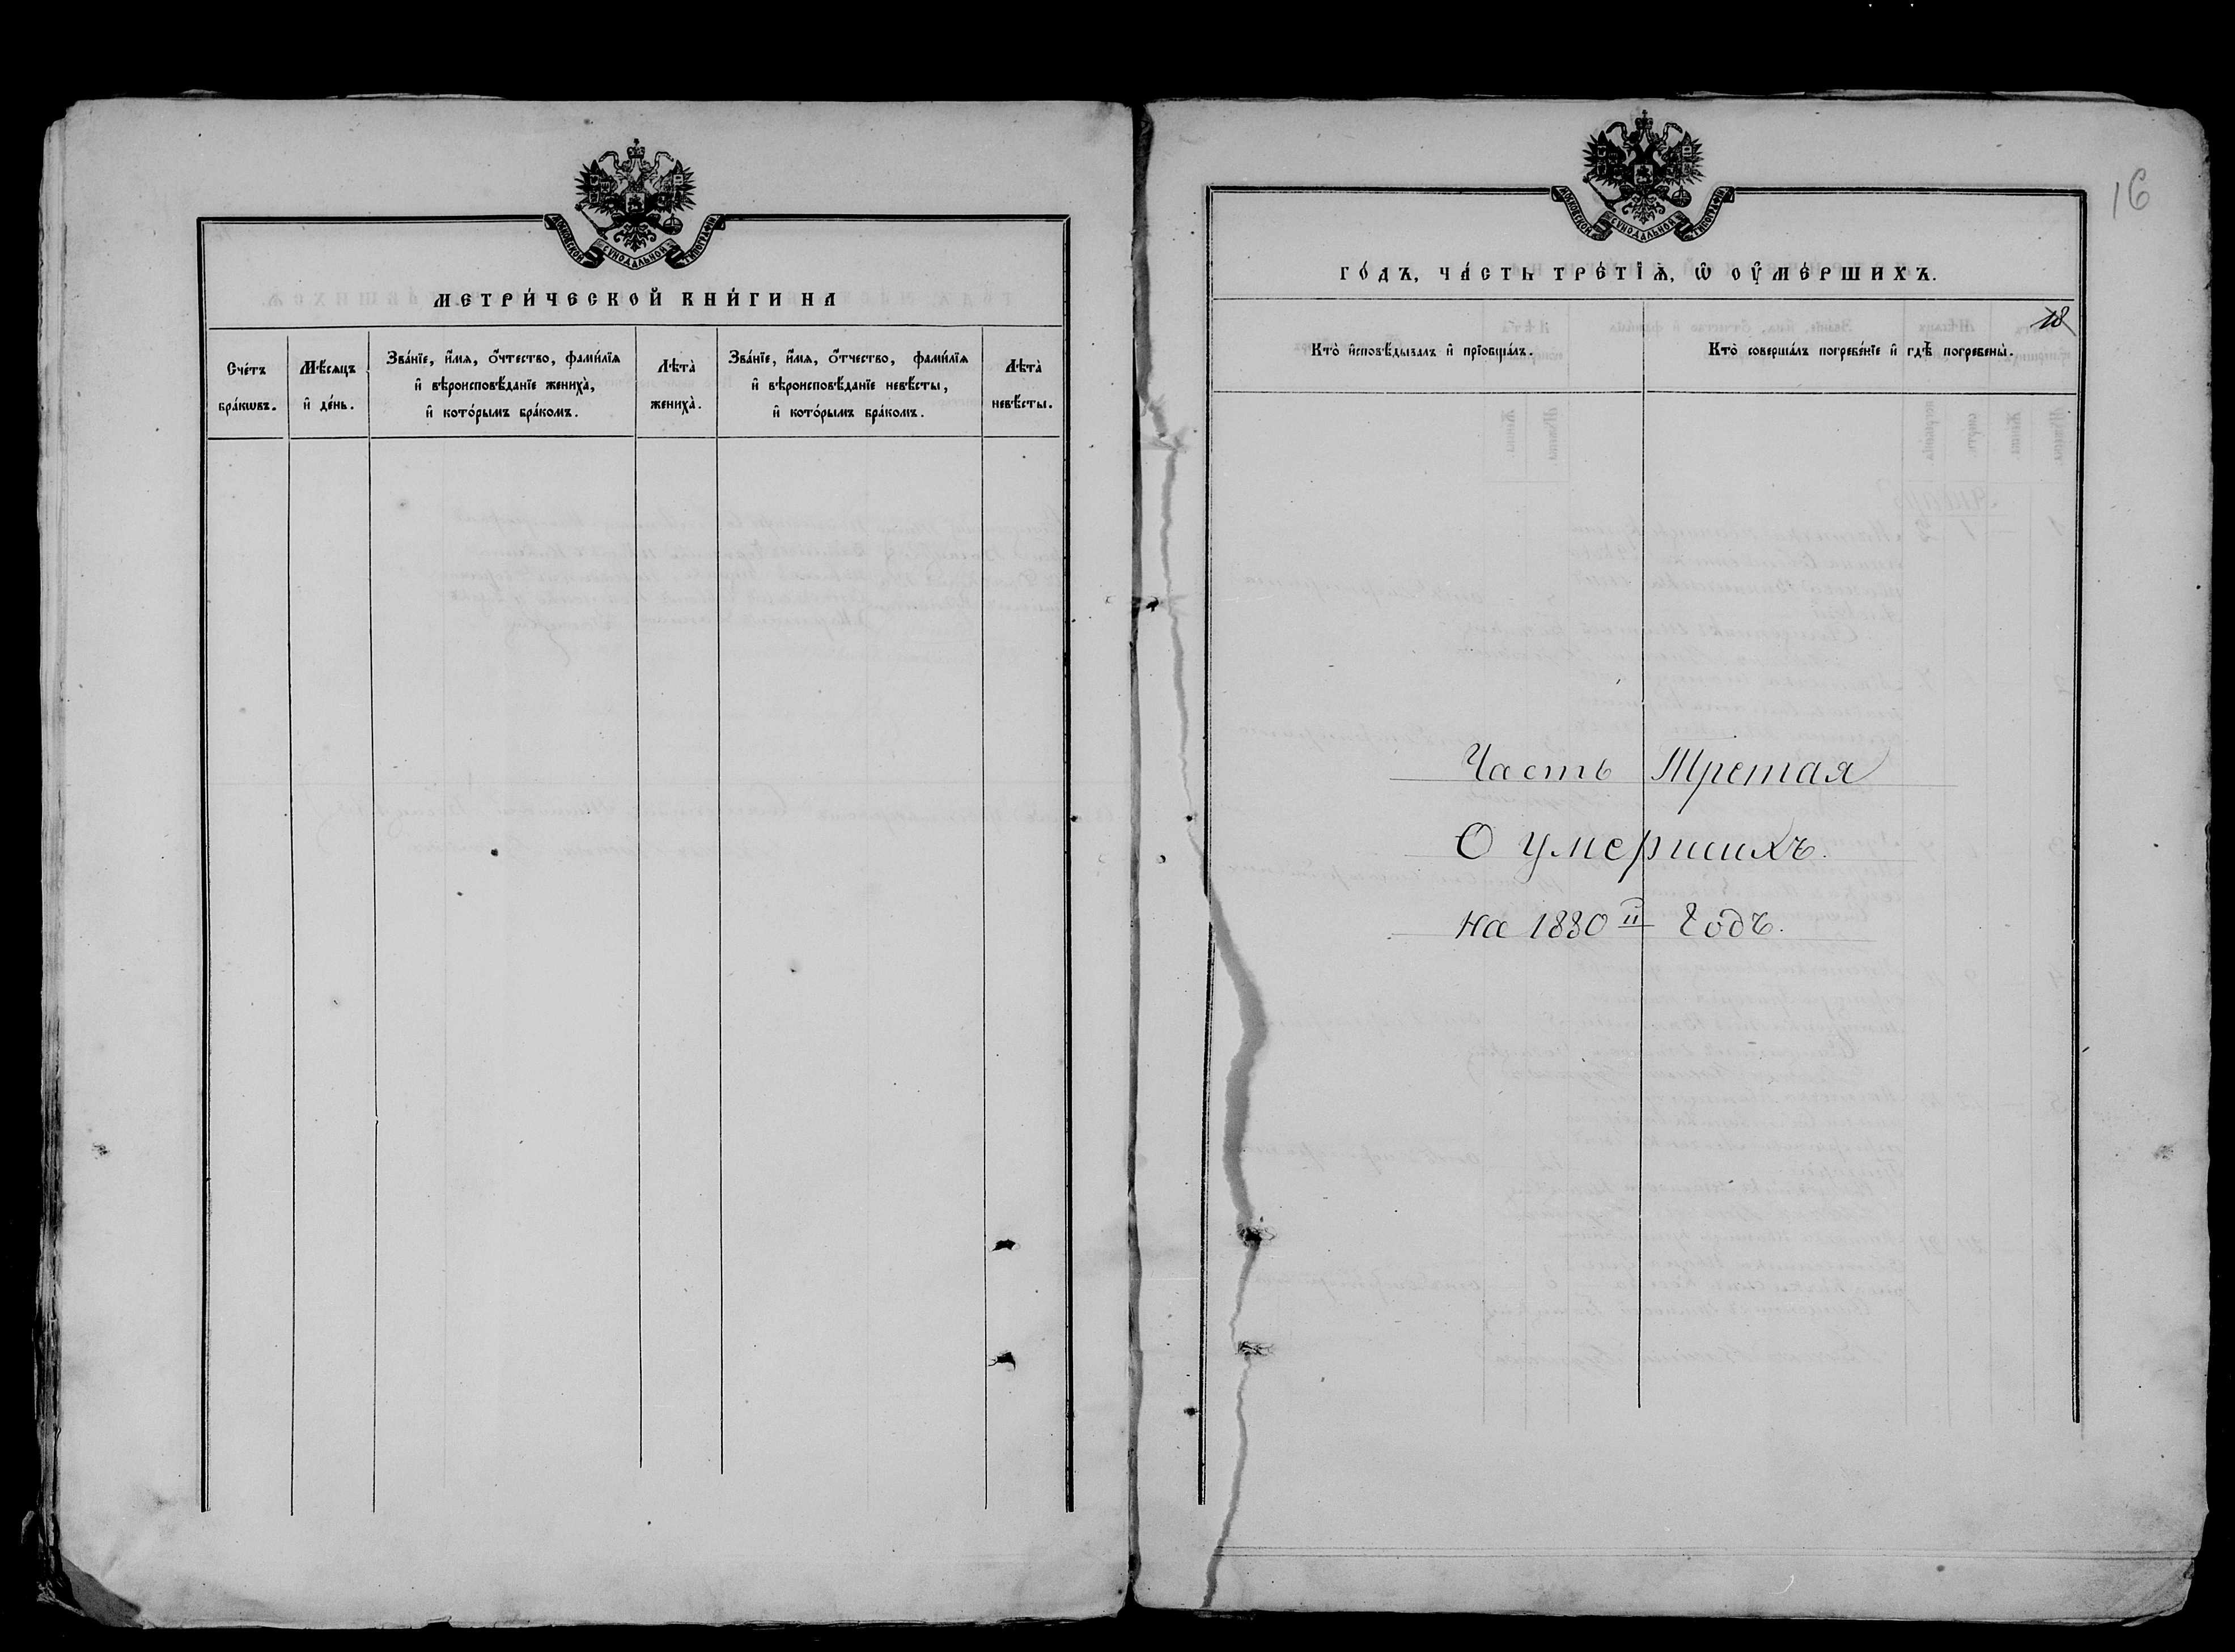 МОСКОВСКОЙ СѴНОДАЛЬНОЙ ТИПОГРАФІИ
МЕТРИ́ЧЕСКОЙ КНИ́ГИ НА
Сче́тъ бра́кѡвъ.
Мѣ́сяцъ и҆ де́нь.
Зва́нїе, и҆́мя, ѻ҆́тчество, фами́лїя
и҆ вѣроисповѣ́данїе жениха̀,
и҆ кото́рымъ бра́комъ.
Лѣта̀ жениха̀.
Зва́нїе, и҆́мя, ѻ҆́тчество, фами́лїя
и҆ вѣроисповѣ́данїе невѣ́сты,
и҆ кото́рымъ бра́комъ.
Лѣта̀ невѣ́сты.
16
МОСКОВСКОЙ СѴНОДАЛЬНОЙ ТИПОГРАФІИ
ГО́ДЪ, ЧА́СТЬ ТРЕ́ТЇѦ, Ѡ҆ ОУ҆МЕ́РШИХЪ.
18
Кто̀ и҆сповѣ́дывалъ и҆ прїобща́лъ.
Кто̀ соверша́лъ погребе́нїе и҆ гдѣ̀ погребены̀.
Часть Третая
О умершихъ.
на 1880й Годъ.